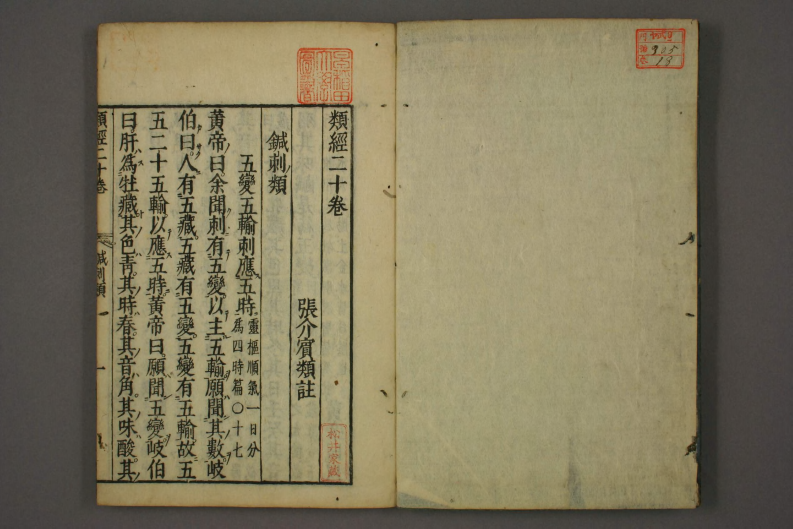 類經二十卷
張介賓類註
鍼刺類
五變五輸刺應五時靈樞順氣一日分爲四時篇〇十七
黃帝曰余聞刺有五變以主五輸願聞其數岐
伯曰人有五藏五藏有五變五變有五輸故五
五二十五輸以應五時黃帝曰願聞五變岐伯
曰肝爲牡藏其色靑其時春其音角其味酸其
類經二十卷 鍼刺類 一